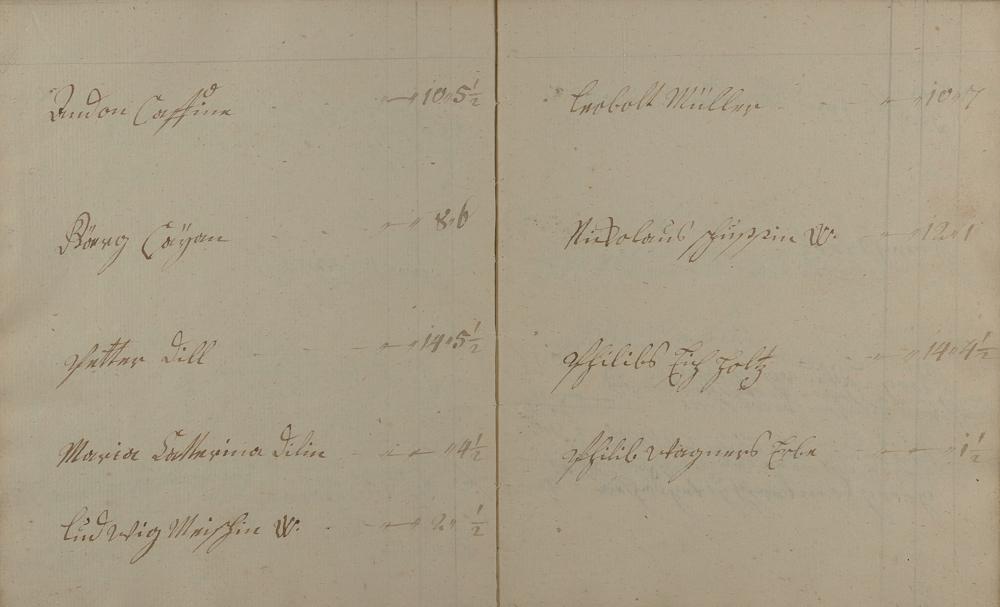 Andon Caffine — " 10 " 5 1/2
Görg Caÿan " — " 8 " 6
Petter Dill " — " 14 " 5 1/2
Maria Catterina Dilin " — " 4 1/2
Ludwig W. " — " 2 " 1/2
Leobolt Müller " — " 10 " 7
Nickolaus W. " — " 12 " 1
Philibs Eich holtz " — " 14 " 4 1/2
Philib Wagners Erbe " — " 1 1/2